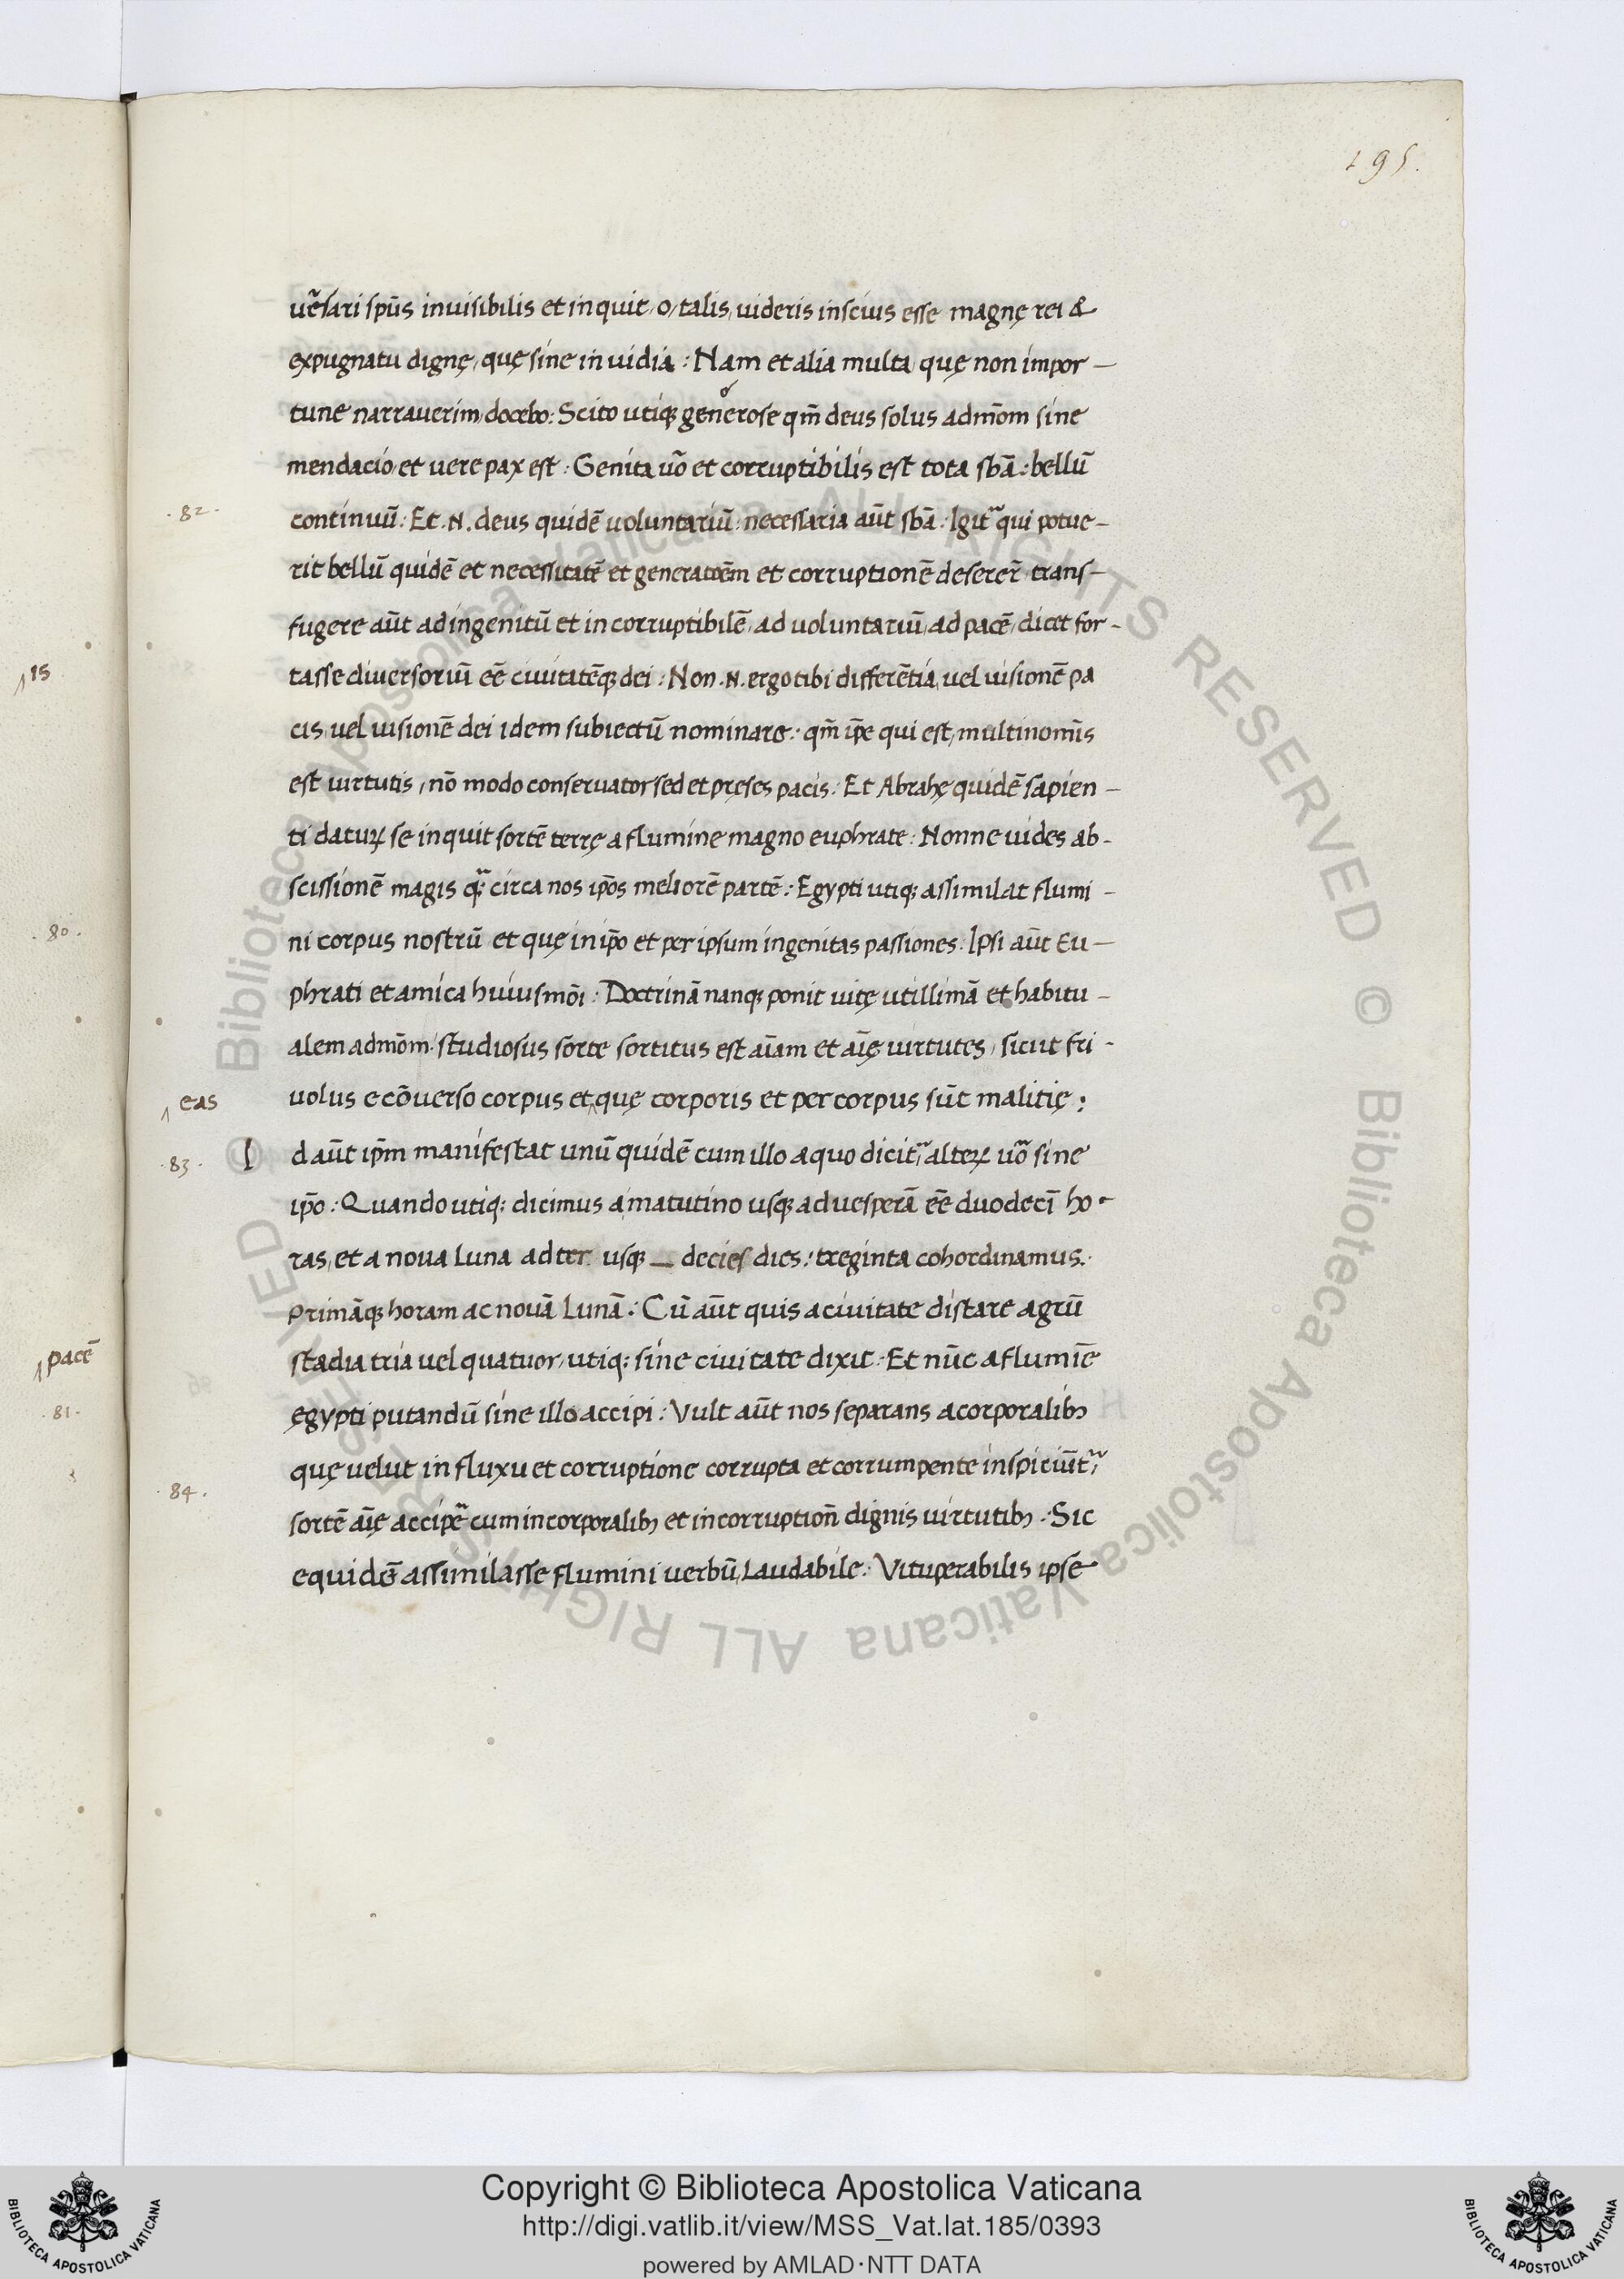 195.
uer̃sari spũs inuisibilis et inquit / o / talis, uideris inscius esse magnę rei &
expugnatu dignę, quę sine inuidia : Nam et alia multa quę non impor –
tune narrauerim docebo : Scito utiqꝫ generose qm̃ deus solus admõm sine
mendacio et uere pax est : Genita uõ et corruptibilis est tota sbã : bellũ
.82. continuũ : Et .N. deus quidẽ uoluntariũ : necessaria aũt sbã : Igit̃ qui potue –
rit bellũ quidẽ et necessitatẽ et generatoẽm et corruptionẽ deserer̃ trans –
fugere aũt ad ingenitũ et incorruptibilẽ, ad uoluntariũ, ad pacẽ, dicet for –
tasse diuersoriũ eẽ ciuitatẽqꝫ dei : Non .N. ergo tibi differẽtia, uel uisionẽ pa
cis, uel uisionẽ dei idem subiectũ nominare : qm̃ ip̃e qui est, multinomĩs
est uirtutis, nõ modo conseruator sed et pręses pacis : Et Abrahę quidẽ sapien –
ti daturꝝ se inquit sortẽ terrę a flumine magno euphrate : Nonne uides ab –
scissionẽ magis q̃ꝫ circa nos ip̃os meliorẽ partẽ : Egypti utiqꝫ assimilat flumi –
ni corpus nostrũ et quę in ip̃o et per ipsum ingenitas passiones : Ipsi aũt Eu –
phrati et amica huiusmõi : Doctrinã nanqꝫ ponit uitę utillimã et habitu –
alem admõm : studiosus sorte sortitus est aĩam et aĩę uirtutes, sicut fri –
eas uolus ecõuerso corpus et quę corporis et per corpus sũt malitię :
.83. I d aũt ip̃m manifestat unũ quidẽ cum illo a quo dicit̃, alterꝝ uõ sine
ip̃o : Quando utiqꝫ dicimus a matutino usqꝫ ad uesperã eẽ duodecĩ ho –
ras, et a noua luna ad ter usqꝫ — decies dies : treginta cohordinamus :
primãqꝫ horam ac nouã Lunã : Cũ aũt quis a ciuitate distare agrũ
stadia tria uel quatuor, utiqꝫ sine ciuitate dixit : Et nũc a flumĩe
ęgypti putandũ sine illo accipi : Vult aũt nos separans a corporalibꝫ
quę uelut in fluxu et corruptione corrupta et corrumpente inspiciũt̃,
.84. sortẽ aĩę accipẽ cum incorporalibꝫ et incorruption̄ dignis uirtutibꝫ : Sic
equidẽ assimilasse flumini uerbũ Laudabile : Vituperabilis ipse
15
.80.
pacẽ
.81.
Copyright © Biblioteca Apostolica Vaticana
http://digi.vatlib.it/view/MSS_Vat.lat.185/0393
powered by AMLAD·NTT DATA
BIBLIOTECA APOSTOLICA VATICANA
BIBLIOTECA APOSTOLICA VATICANA
© Biblioteca Apostolica Vaticana ALL RIGHTS RESERVED © Biblioteca Apostolica Vaticana ALL RIGHTS RESERVED